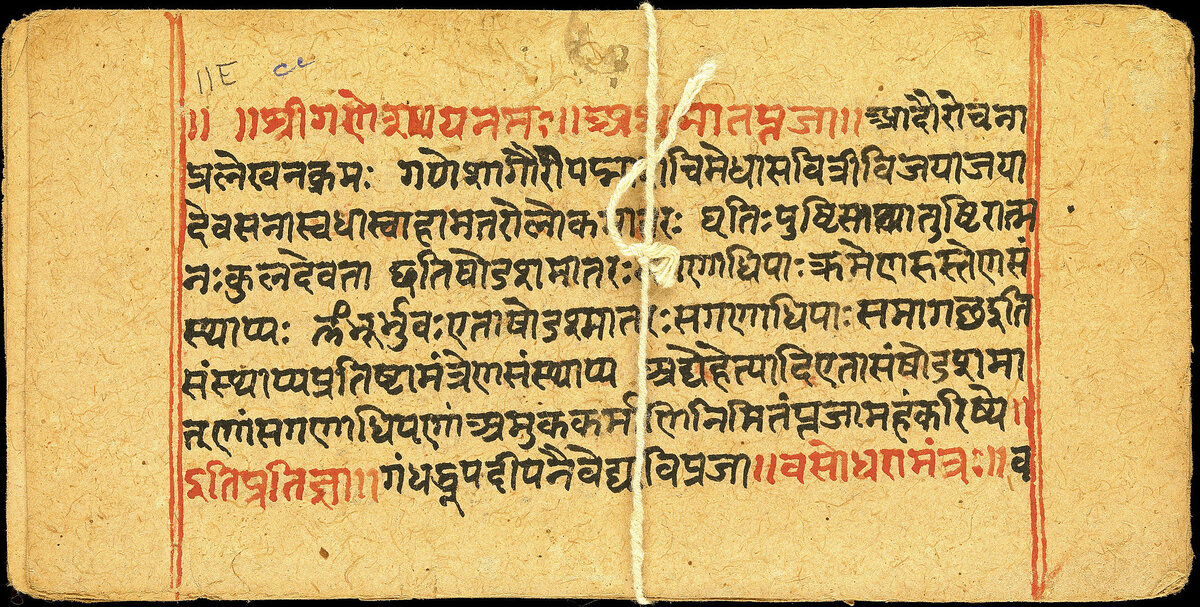 ॥E cc
॥ ॥श्रीगणेशायनमः॥अथ मातपूजा॥आदौरोचना
प्रलेखनक्रमः गणेशगौरीपद्मा चिमेधासवित्रीविजयाजया
देवसेनास्वधास्वाहामातरोलोक मातरः धृतिःपुष्टिस्तथातुष्टिरात्म
नःकुलदेवता षोडशमातरः गणाधिपाःक्रमेणहस्तेणसं
स्थाप्यः भूर्भुवःएताषोडशमातरःसगणाधिपाःसमागछइति
संस्थाप्यप्रतिष्टामंत्रेणसंस्थाप्य अद्येहेत्यादिएतासंषोडशमा
तृणांसगणाधिपणांअमुककर्म णिनिमितंपूजामहंकरिष्ये॥
इतिप्रतिज्ञा॥गंधधूपदीपनैवेद्य विपूजा॥वसोधरामंत्रः॥व